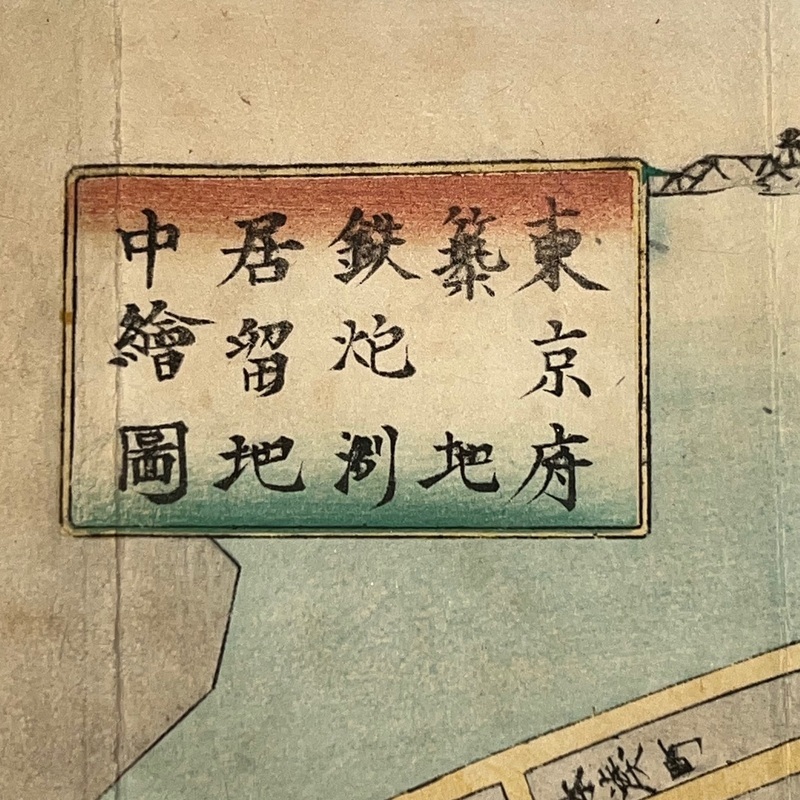 東京府
築地
鉄炮洲
居留地
中繪圖